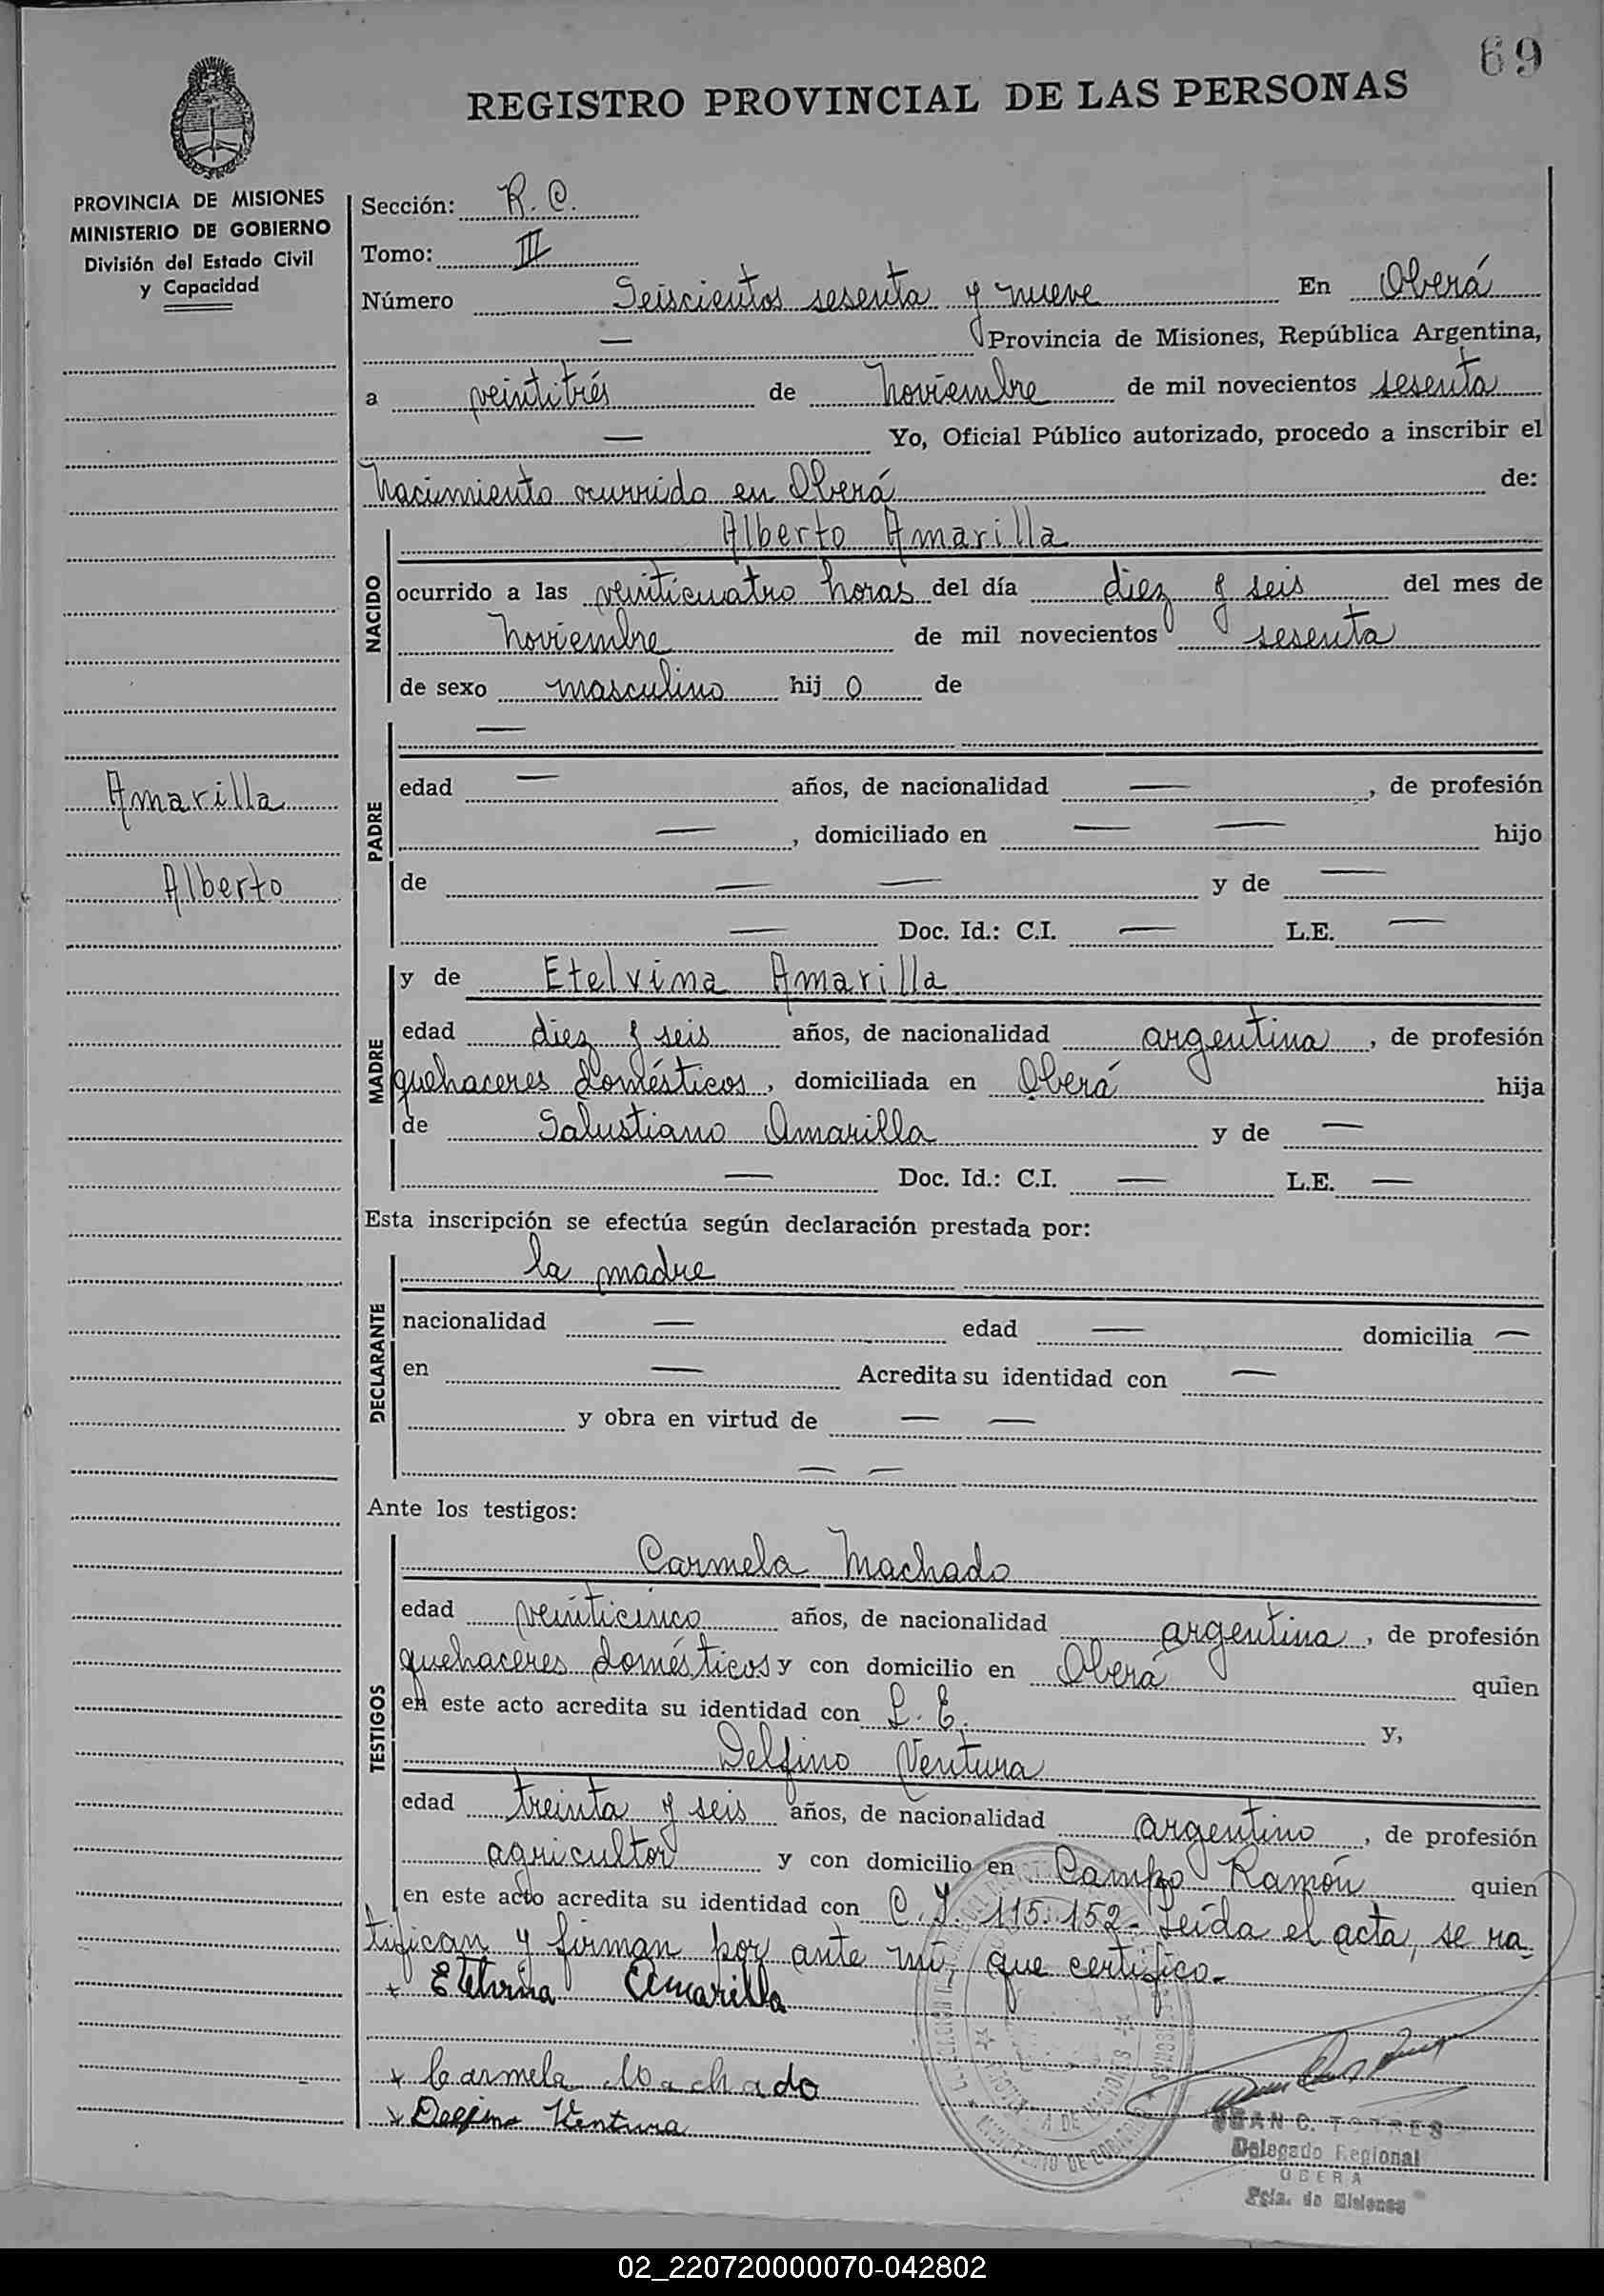 69
REGISTRO PROVINCIAL DE LAS PERSONAS
PROVINCIA DE MISIONES
MINISTERIO DE GOBIERNO
División del Estado Civil
y Capacidad
Amarilla
Alberto
Sección: R. C.
Tomo: III
Número Seiscientos sesenta y nueve En Oberá
— Provincia de Misiones, República Argentina,
a veintitrés de noviembre de mil novecientos sesenta
— Yo, Oficial Público autorizado, procedo a inscribir el
nacimiento ocurrido en Oberá de:
NACIDO
Alberto Amarilla
ocurrido a las veinticuatro horas del día diez y seis del mes de
noviembre de mil novecientos sesenta
de sexo masculino hij o de
PADRE
—
edad — años, de nacionalidad —, de profesión
—, domiciliado en — — hijo
de — — y de —
— Doc. Id.: C.I. — L.E. —
MADRE
y de Etelvina Amarilla
edad diez y seis años, de nacionalidad argentina, de profesión
quehaceres domésticos, domiciliada en Oberá hija
de Salustiano Amarilla y de —
— Doc. Id.: C.I. — L.E. —
Esta inscripción se efectúa según declaración prestada por:
DECLARANTE
la madre
nacionalidad — edad — domicilia —
en — Acredita su identidad con —
y obra en virtud de — —
— —
Ante los testigos:
TESTIGOS
Carmela Machado
edad veinticinco años, de nacionalidad argentina, de profesión
quehaceres domésticos y con domicilio en Oberá quien
en este acto acredita su identidad con L. E. y,
Delfino Ventura
edad treinta y seis años, de nacionalidad argentino, de profesión
agricultor y con domicilio en Campo Ramón quien
en este acto acredita su identidad con C. I. 115.152- Leída el acta, se ra-
tifican y firman por ante mí, que certifico-
x Etelvina Amarilla
x Carmela Machado
x Delfino Ventura
MINISTERIO DE GOBIERNO
PROVINCIA DE MISIONES
JUAN C. TORRES
Delegado Regional
OBERA
Pcia. de Misiones
02_220720000070-042802